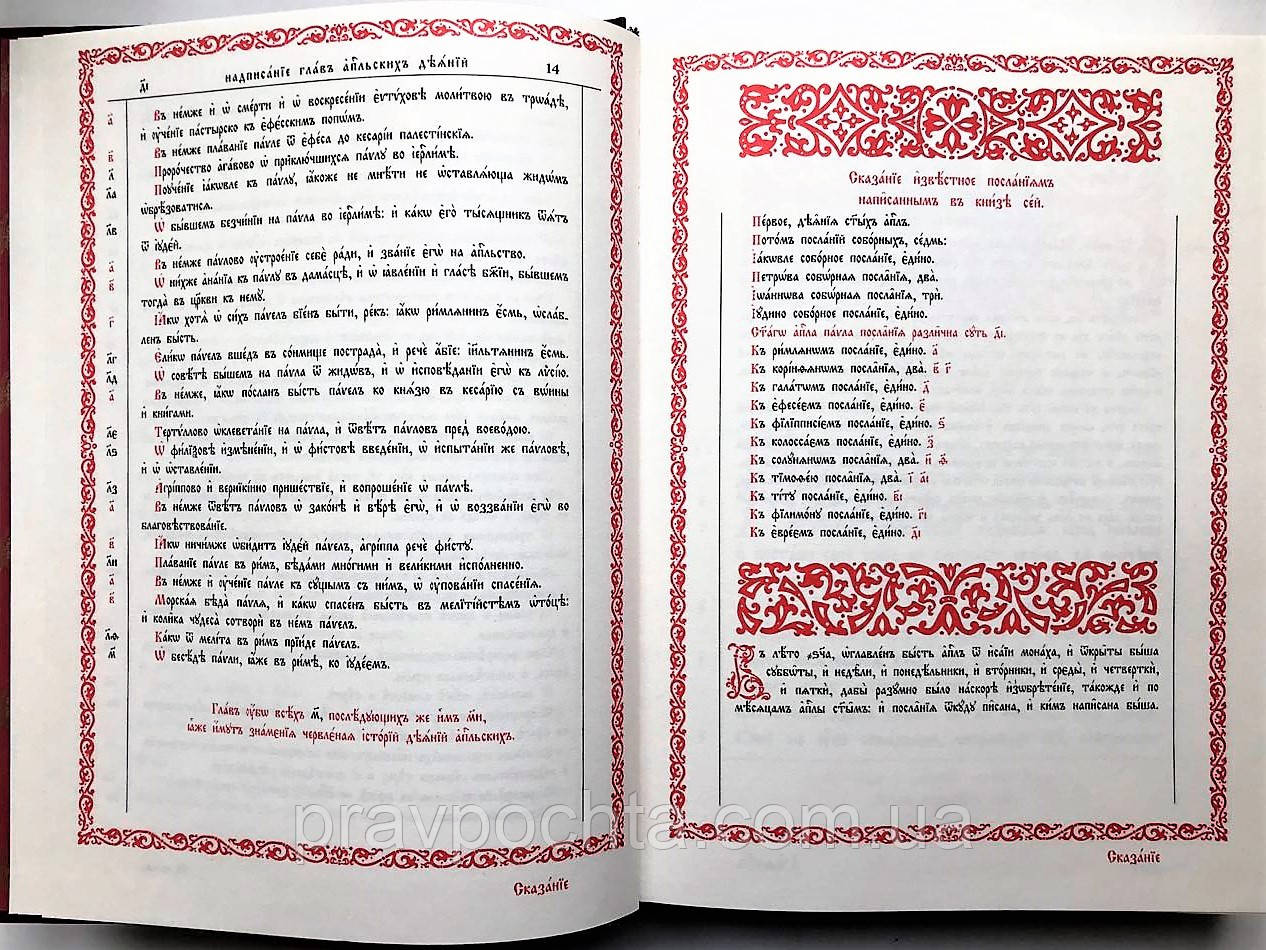 д҃і надписа́нїе гла́въ а҆п҃льскихъ дѣѧ́нїй 14
а҃ Въ не́мже и҆ ѡ҆ сме́рти и҆ ѡ҆ воскресе́нїи є҆ѵтѵ́ховѣ моли́твою въ трѡа́дѣ,
и҆ ᲂу҆че́нїе па́стырско къ є҆фе́сскимъ попѡ́мъ.
в҃ Въ не́мже пла́ванїе па́ѵле ѿ є҆фе́са до кесарі́и палести́нскїѧ.
л҃ Проро́чество а҆га́вово ѡ҆ приклю́чшихсѧ па́ѵлу во і҆ер҇ли́мѣ.
л҃а Поᲂуче́нїе і҆а́кѡвле къ па́ѵлу, ꙗ҆́коже не мнѣ́ти не ѡ҆ставлѧ́юща жидѡ́мъ
ѡ҆брѣ́зоватисѧ.
л҃в Ѡ҆ бы́вшемъ безчи́нїи на па́ѵла во і҆ер҇ли́мѣ: и҆ ка́кѡ є҆го̀ ты́сѧщникъ ѿѧ́тъ
ѿ і҆ꙋде́й.
а҃ Въ не́мже па́ѵлово ᲂу҆строе́нїе себѐ ра́ди, и҆ зва́нїе є҆гѡ̀ на а҆п҃льство.
в҃ Ѡ҆ ни́хже а҆на́нїа къ па́ѵлу въ дама́сцѣ, и҆ ѡ҆ ꙗ҆вле́нїи и҆ гла́сѣ бж҃їи, бы́вшемъ
тогда̀ въ цр҃кви къ немꙋ̀.
г҃ Ꙗ҆́кѡ хотѧ̀ ѡ҆ си́хъ па́ѵелъ бїе́нъ бы́ти, ре́къ: ꙗ҆́кѡ ри́млѧнинъ є҆́смь, ѡ҆сла́б-
ленъ бы́сть.
л҃г Є҆ли́кѡ па́ѵелъ вше́дъ въ со́нмище пострада̀, и҆ речѐ а҆́бїе: і҆и҃льтѧнинъ є҆́смь.
л҃д Ѡ҆ совѣ́тѣ бы́вшемъ на па́ѵла ѿ жидѡ́въ, и҆ ѡ҆ и҆сповѣ́данїи є҆гѡ̀ къ лѵсі́ю.
а҃ Въ не́мже, ꙗ҆́кѡ по́сланъ бы́сть па́ѵелъ ко кнѧ́зю въ кесарі́ю съ во́ины
и҆ кни́гами.
л҃є Терту́ллово ѡ҆клевета́нїе на па́ѵла, и҆ ѿвѣ́тъ па́ѵловъ пред̾ воево́дою.
л҃ѕ Ѡ҆ фили́ѯовѣ и҆змѣне́нїи, и҆ ѡ҆ фи́стовѣ введе́нїи, ѡ҆ и҆спыта́нїи же па́ѵловѣ,
и҆ ѡ҆ ѡ҆ставле́нїи.
л҃з А҆грі́ппово и҆ верникі́ино прише́ствїе, и҆ вопроше́нїе ѡ҆ па́ѵлѣ.
а҃ Въ не́мже ѿвѣ́тъ па́ѵловъ ѡ҆ зако́нѣ и҆ вѣ́рѣ є҆гѡ̀, и҆ ѡ҆ воззва́нїи є҆гѡ̀ во
благовѣ́ствованїе.
в҃ Ꙗ҆́кѡ ничи́мже ѡ҆би́дитъ і҆ꙋде́й па́ѵелъ, а҆грі́ппа речѐ фи́сту.
л҃и Пла́ванїе па́ѵле въ ри́мъ, бѣ́дами мно́гими и҆ вели́кими и҆спо́лнено.
а҃ Въ не́мже и҆ ᲂу҆че́нїе па́ѵле къ су́щымъ съ ни́мъ, ѡ҆ ᲂу҆пова́нїи спасе́нїѧ.
в҃ Морска́ѧ бѣда̀ па́ѵлѧ, и҆ ка́кѡ спасе́нъ бы́сть въ мелїті́йстѣмъ ѻ҆́тоцѣ:
и҆ коли́ка чудеса̀ сотворѝ въ не́мъ па́ѵелъ.
л҃ѳ Ка́кѡ ѿ мели́та въ ри́мъ прїи́де па́ѵелъ.
м҃ Ѡ҆ бесѣ́дѣ па́ѵли, ꙗ҆́же въ ри́мѣ, ко і҆ꙋде́ємъ.
Гла́въ ᲂу҆́бѡ всѣ́хъ м҃, послѣ́дующихъ же и҆̀мъ м҃и,
ꙗ҆̀же и҆́мутъ зна́менїѧ червле́наѧ і҆сторі́й дѣѧ́нїй а҆п҃льскихъ.
Сказа́нїе
Сказа́нїе и҆звѣ́стное посла́нїѧмъ
напи́саннымъ въ кни́зѣ се́й.
Пе́рвое, дѣѧ́нїѧ ст҃ы́хъ а҆п҃лъ.
Пото́мъ посла́нїй собо́рныхъ, се́дмь:
І҆а́кѡвле собо́рное посла́нїе, є҆ди́но.
Петро́ва собѡ́рнаѧ посла̑нїѧ, два̀.
І҆ѡа́ннѡва собѡ́рнаѧ посла̑нїѧ, трѝ.
І҆у́дино собо́рное посла́нїе, є҆ди́но.
Ст҃а́гѡ а҆п҃ла па́ѵла посла̑нїѧ разли́чна су́ть д҃і.
Къ ри́млѧнѡмъ посла́нїе, є҆ди́но. а҃
Къ корі́нѳѧнѡмъ посла̑нїѧ, два̀. в҃ г҃
Къ гала́тѡмъ посла́нїе, є҆ди́но. д҃
Къ є҆фесе́ємъ посла́нїе, є҆ди́но. є҃
Къ фїлїпписі́ємъ посла́нїе, є҆ди́но. ѕ҃
Къ колосса́ємъ посла́нїе, є҆ди́но. з҃
Къ солу́нѧнѡмъ посла̑нїѧ, два̀. и҃ ѳ҃
Къ тїмоѳе́ю посла̑нїѧ, два̀. і҃ а҃і
Къ ті́ту посла́нїе, є҆ди́но. в҃і
Къ фїлимо́ну посла́нїе, є҆ди́но. г҃і
Къ є҆вре́ємъ посла́нїе, є҆ди́но. д҃і
Въ лѣ́то ҂зч҃а, ѡ҆гла́вленъ бы́сть а҆п҃лъ ѿ и҆са́їи мона́ха, и҆ ѡ҆кры́ты бы́ша
суббѡ́ты, и҆ недѣ́ли, и҆ понедѣ́льники, и҆ вто́рники, и҆ среды̀, и҆ четверткѝ,
и҆ пѧткѝ, дабы̀ разу́мно бы́ло наско́рѣ и҆зѡбрѣ́тенїе, та́кожде и҆ по
мѣ́сѧцамъ а҆п҃лы ст҃ы̑мъ: и҆ посла̑нїѧ ѿку́ду пи́сана, и҆ ки́мъ напи́сана бы́ша.
Сказа́нїе
pravpochta.com.ua